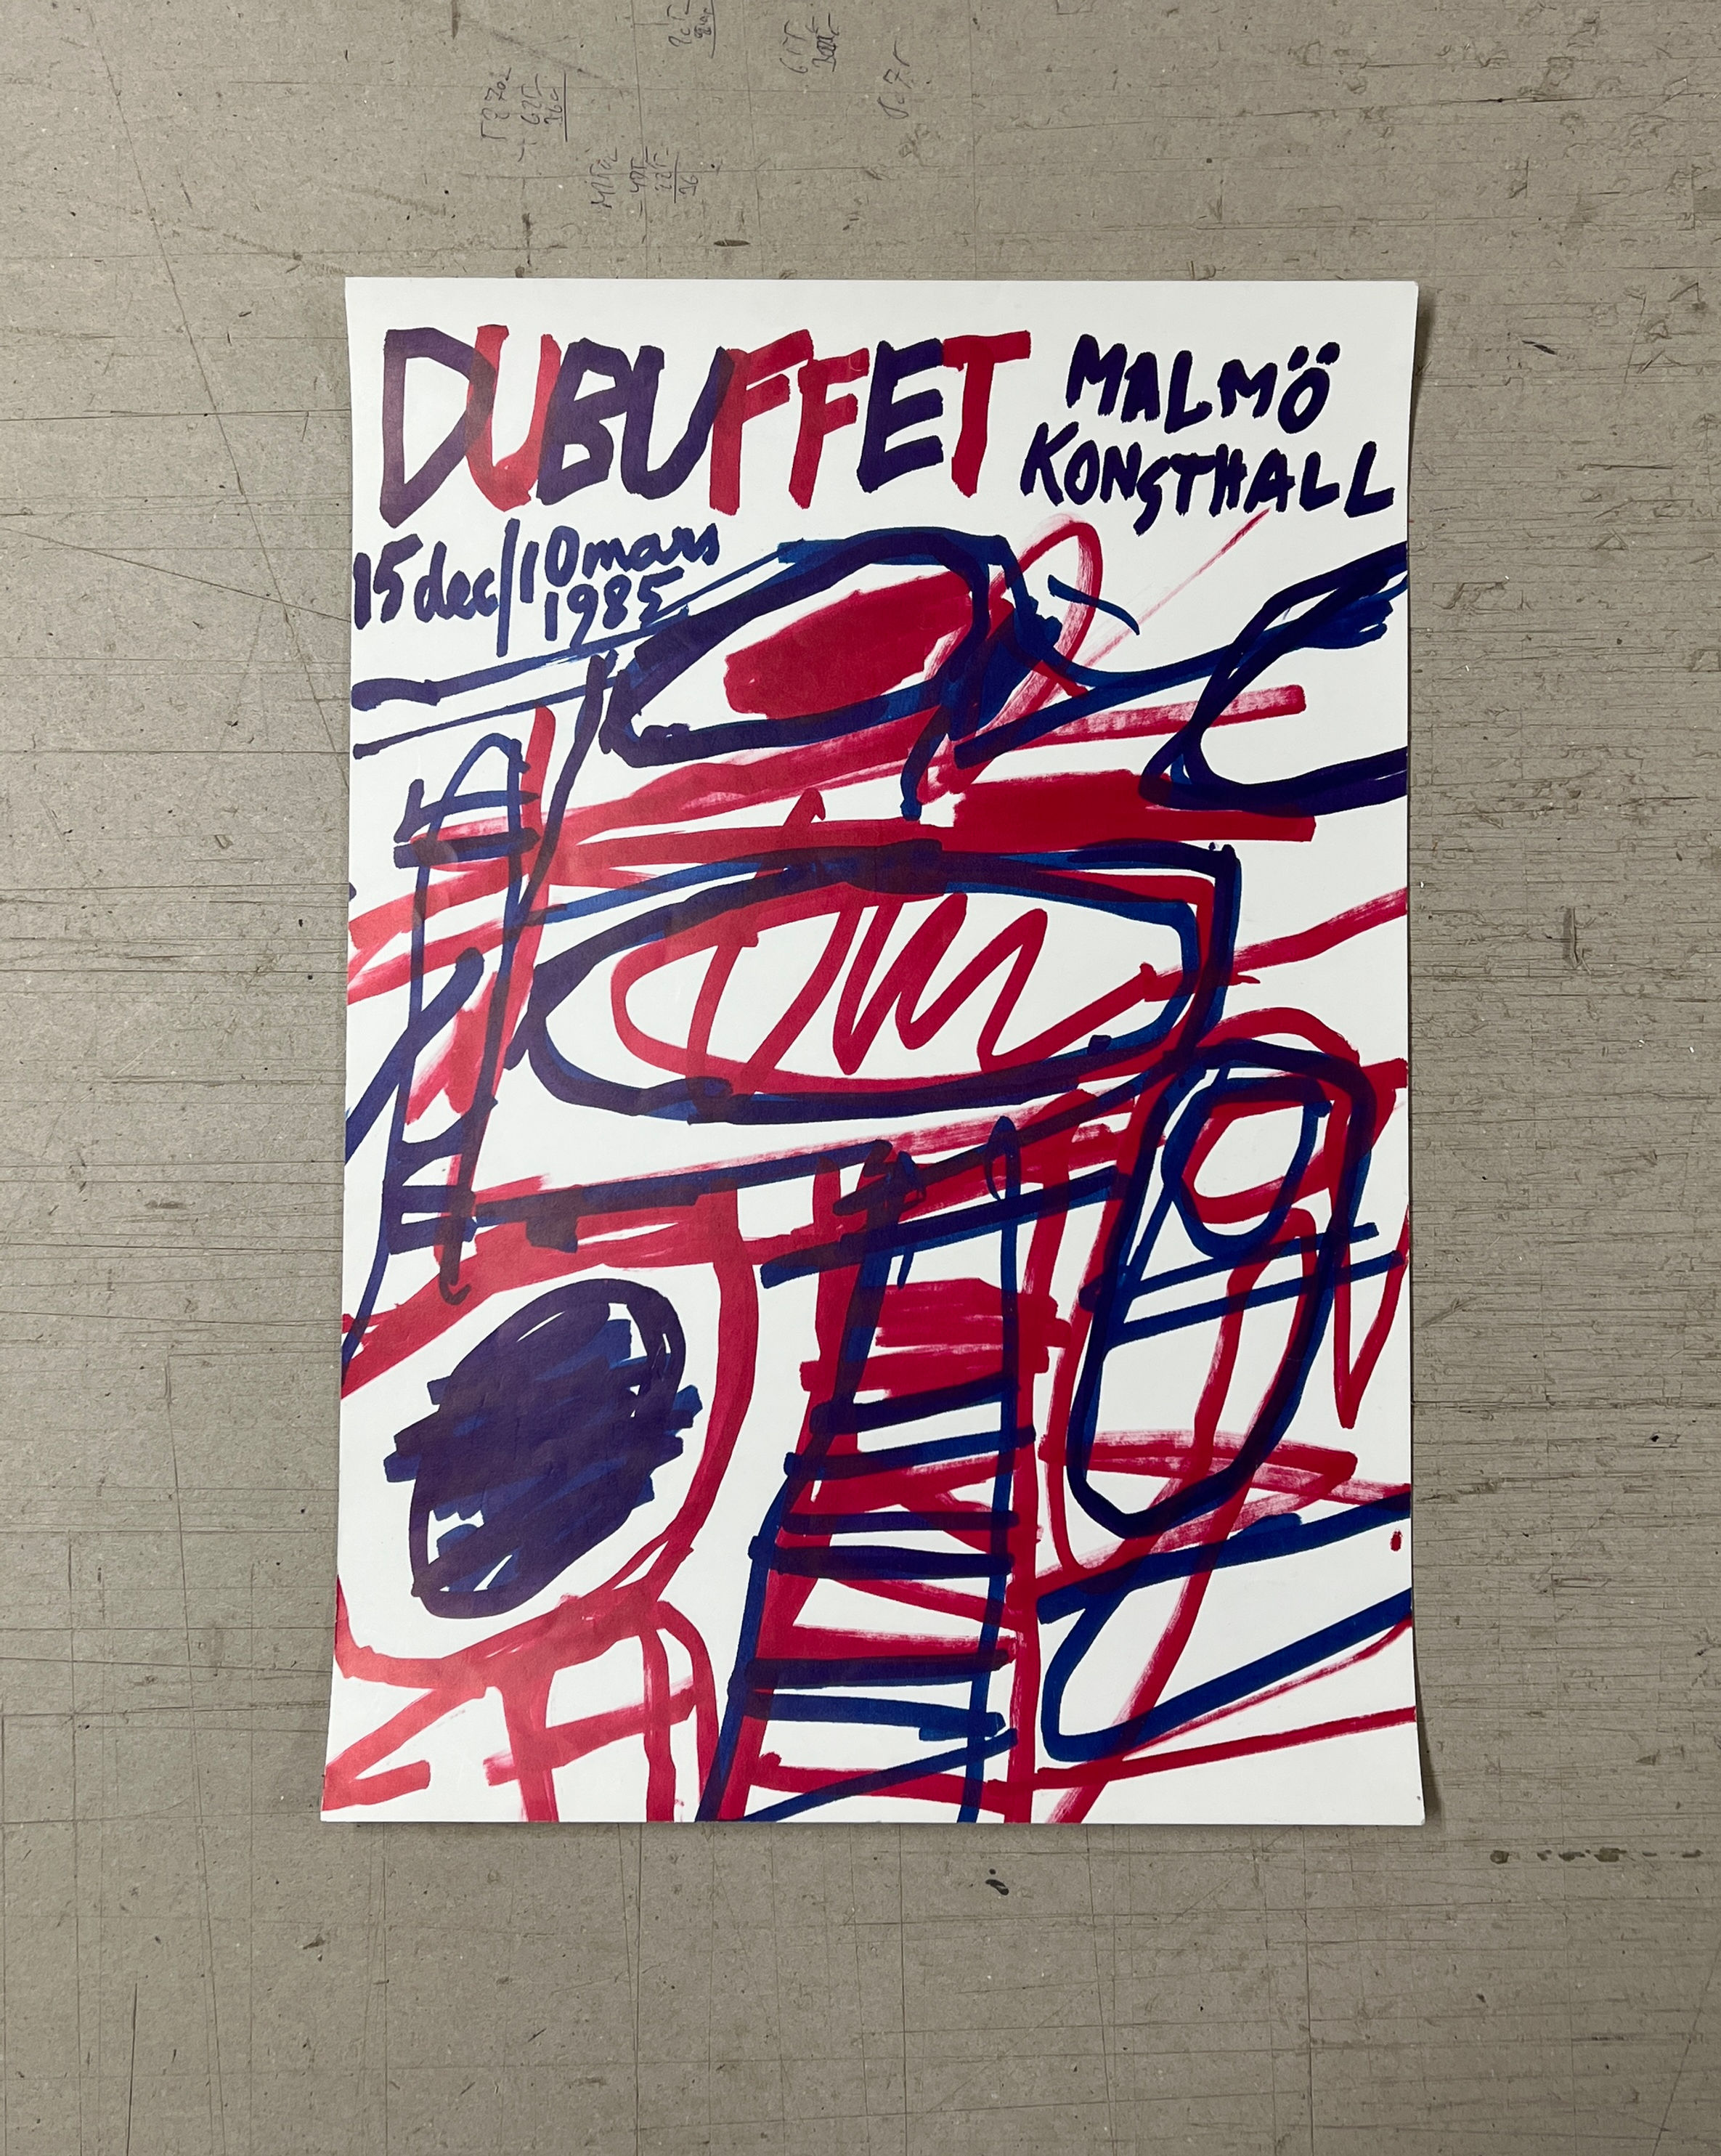 DUBUFFET
MALMÖ
KONSTHALL
15 dec/10 mars
1985